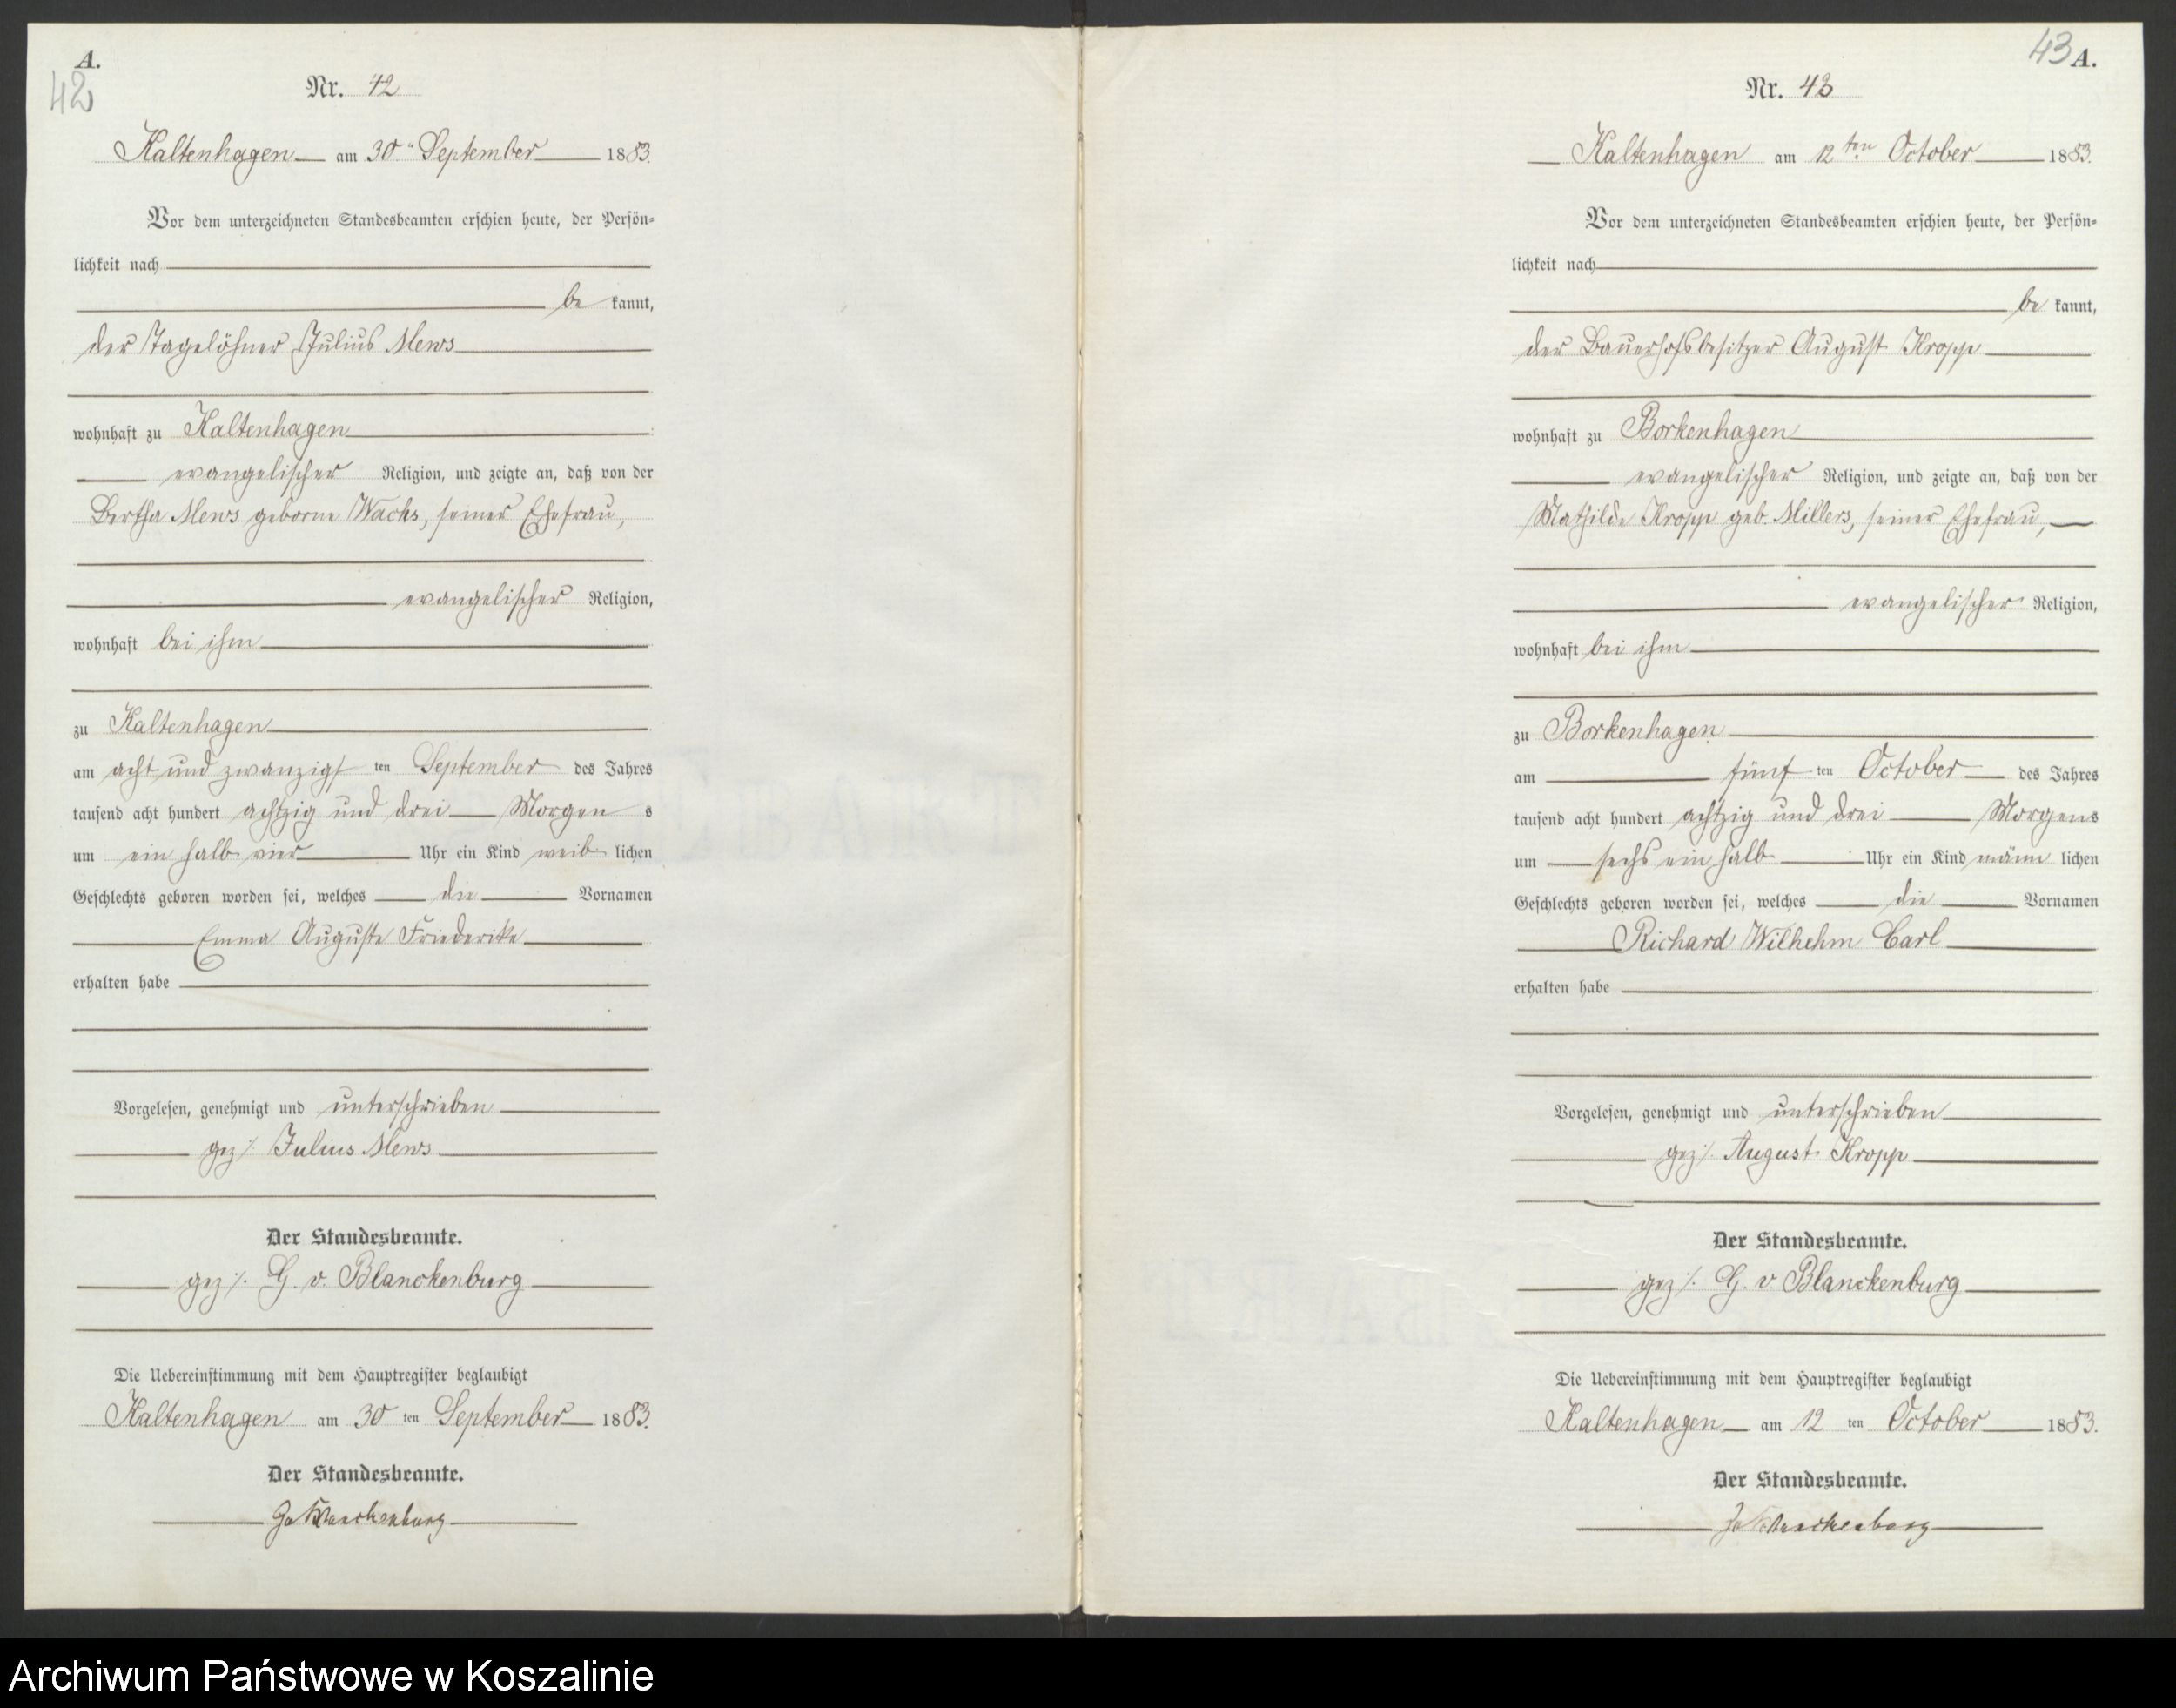 A.
42
Nr. 42
Kaltenhagen am 30ten September 1883.
Vor dem unterzeichneten Standesbeamten erschien heute, der Persön-
lichkeit nach
be kannt,
der Tagelöhner Julius Mews
wohnhaft zu Kaltenhagen
evangelischer Religion, und zeigte an, daß von der
Bertha Mews geborne Wachs, seiner Ehefrau,
evangelischer Religion,
wohnhaft bei ihm
zu Kaltenhagen
am acht und zwanzigs ten September des Jahres
tausend acht hundert achtzig und drei Morgen s
um ein halb vier Uhr ein Kind weib lichen
Geschlechts geboren worden sei, welches die Vornamen
Emma Auguste Friederike
erhalten habe
Vorgelesen, genehmigt und unterschrieben
gez ./. Julius Mews
Der Standesbeamte.
gez ./. G. v. Blanckenburg
Die Uebereinstimmung mit dem Hauptregister beglaubigt
Kaltenhagen am 30 ten September 1883.
Der Standesbeamte.
Gv Blanckenburg
43 A.
Nr. 43
Kaltenhagen am 12ten October 1883.
Vor dem unterzeichneten Standesbeamten erschien heute, der Persön-
lichkeit nach
be kannt,
der Bauerhofsbesitzer August Kropp
wohnhaft zu Borkenhagen
evangelischer Religion, und zeigte an, daß von der
Mathilde Kropp geb. Millers, seiner Ehefrau,
evangelischer Religion,
wohnhaft bei ihm
zu Borkenhagen
am fünf ten October des Jahres
tausend acht hundert achtzig und drei Morgens
um sechs ein halb Uhr ein Kind männ lichen
Geschlechts geboren worden sei, welches die Vornamen
Richard Wilhelm Carl
erhalten habe
Vorgelesen, genehmigt und unterschrieben
gez ./. August Kropp
Der Standesbeamte.
gez ./. G. v. Blanckenburg
Die Uebereinstimmung mit dem Hauptregister beglaubigt
Kaltenhagen am 12 ten October 1883.
Der Standesbeamte.
Gv Blanckenburg
Archiwum Państwowe w Koszalinie